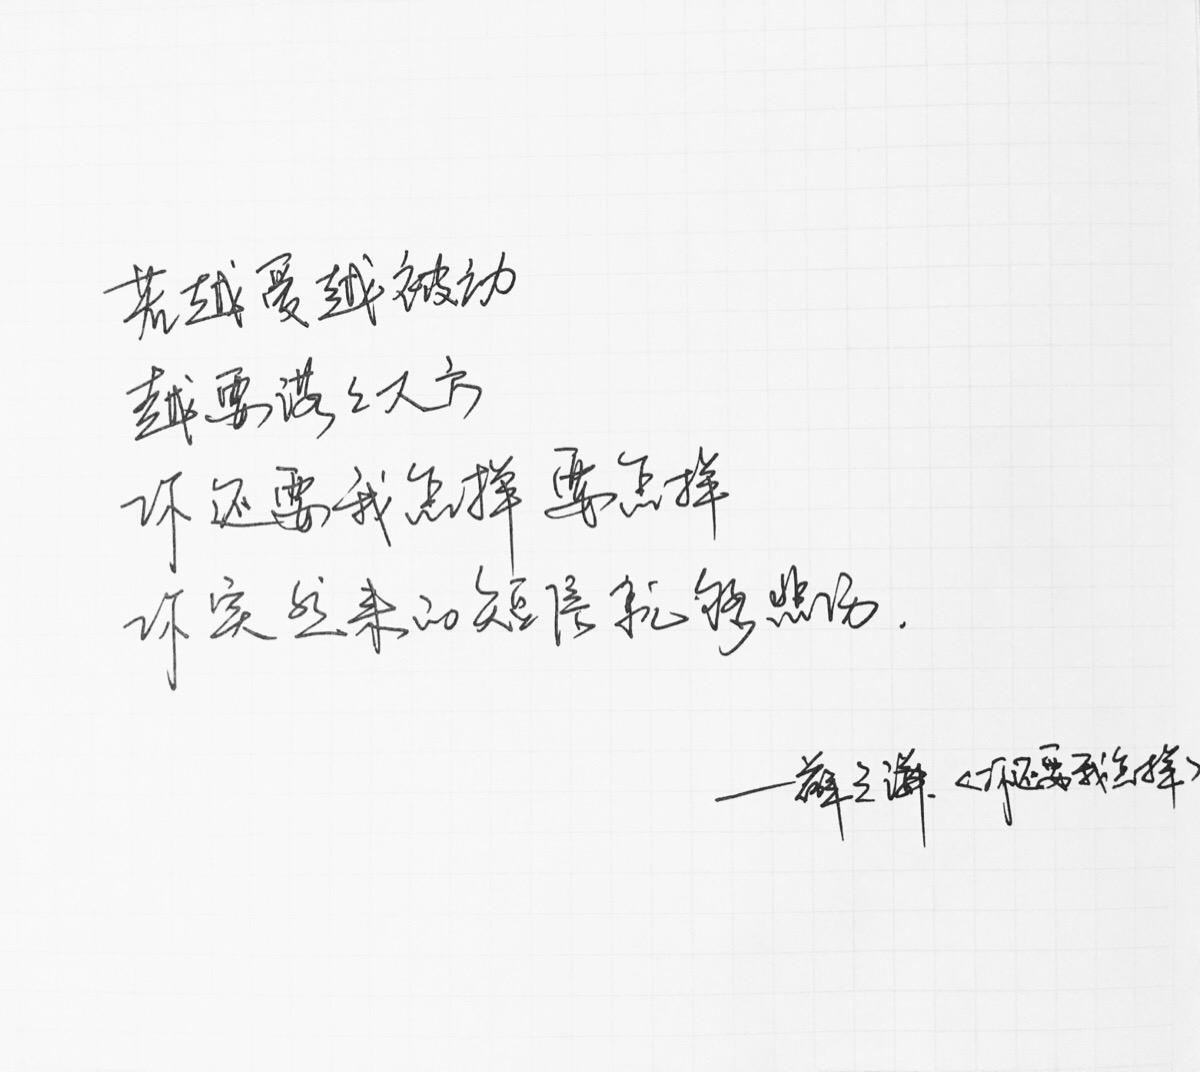 若越爱越被动
越要落落大方
你还要我怎样 要怎样
你突然来的短信就够悲伤.
——薛之谦.<你还要我怎样>